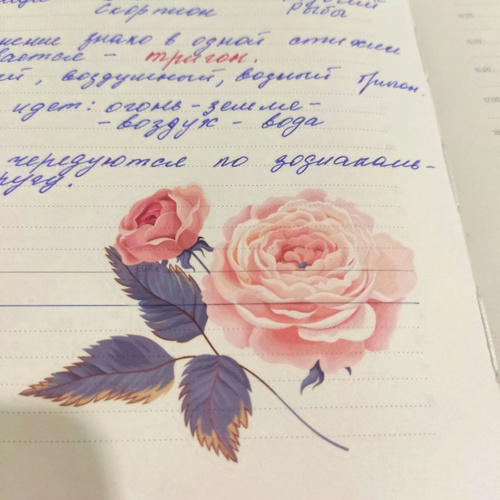 Скорпион Рыбы
нение знако в одной стихии
вается - тригон.
ий, воздушный, водный тригон.
идет: огонь - земля -
- воздух - вода
чередуются по зодиакаль-
ругу.